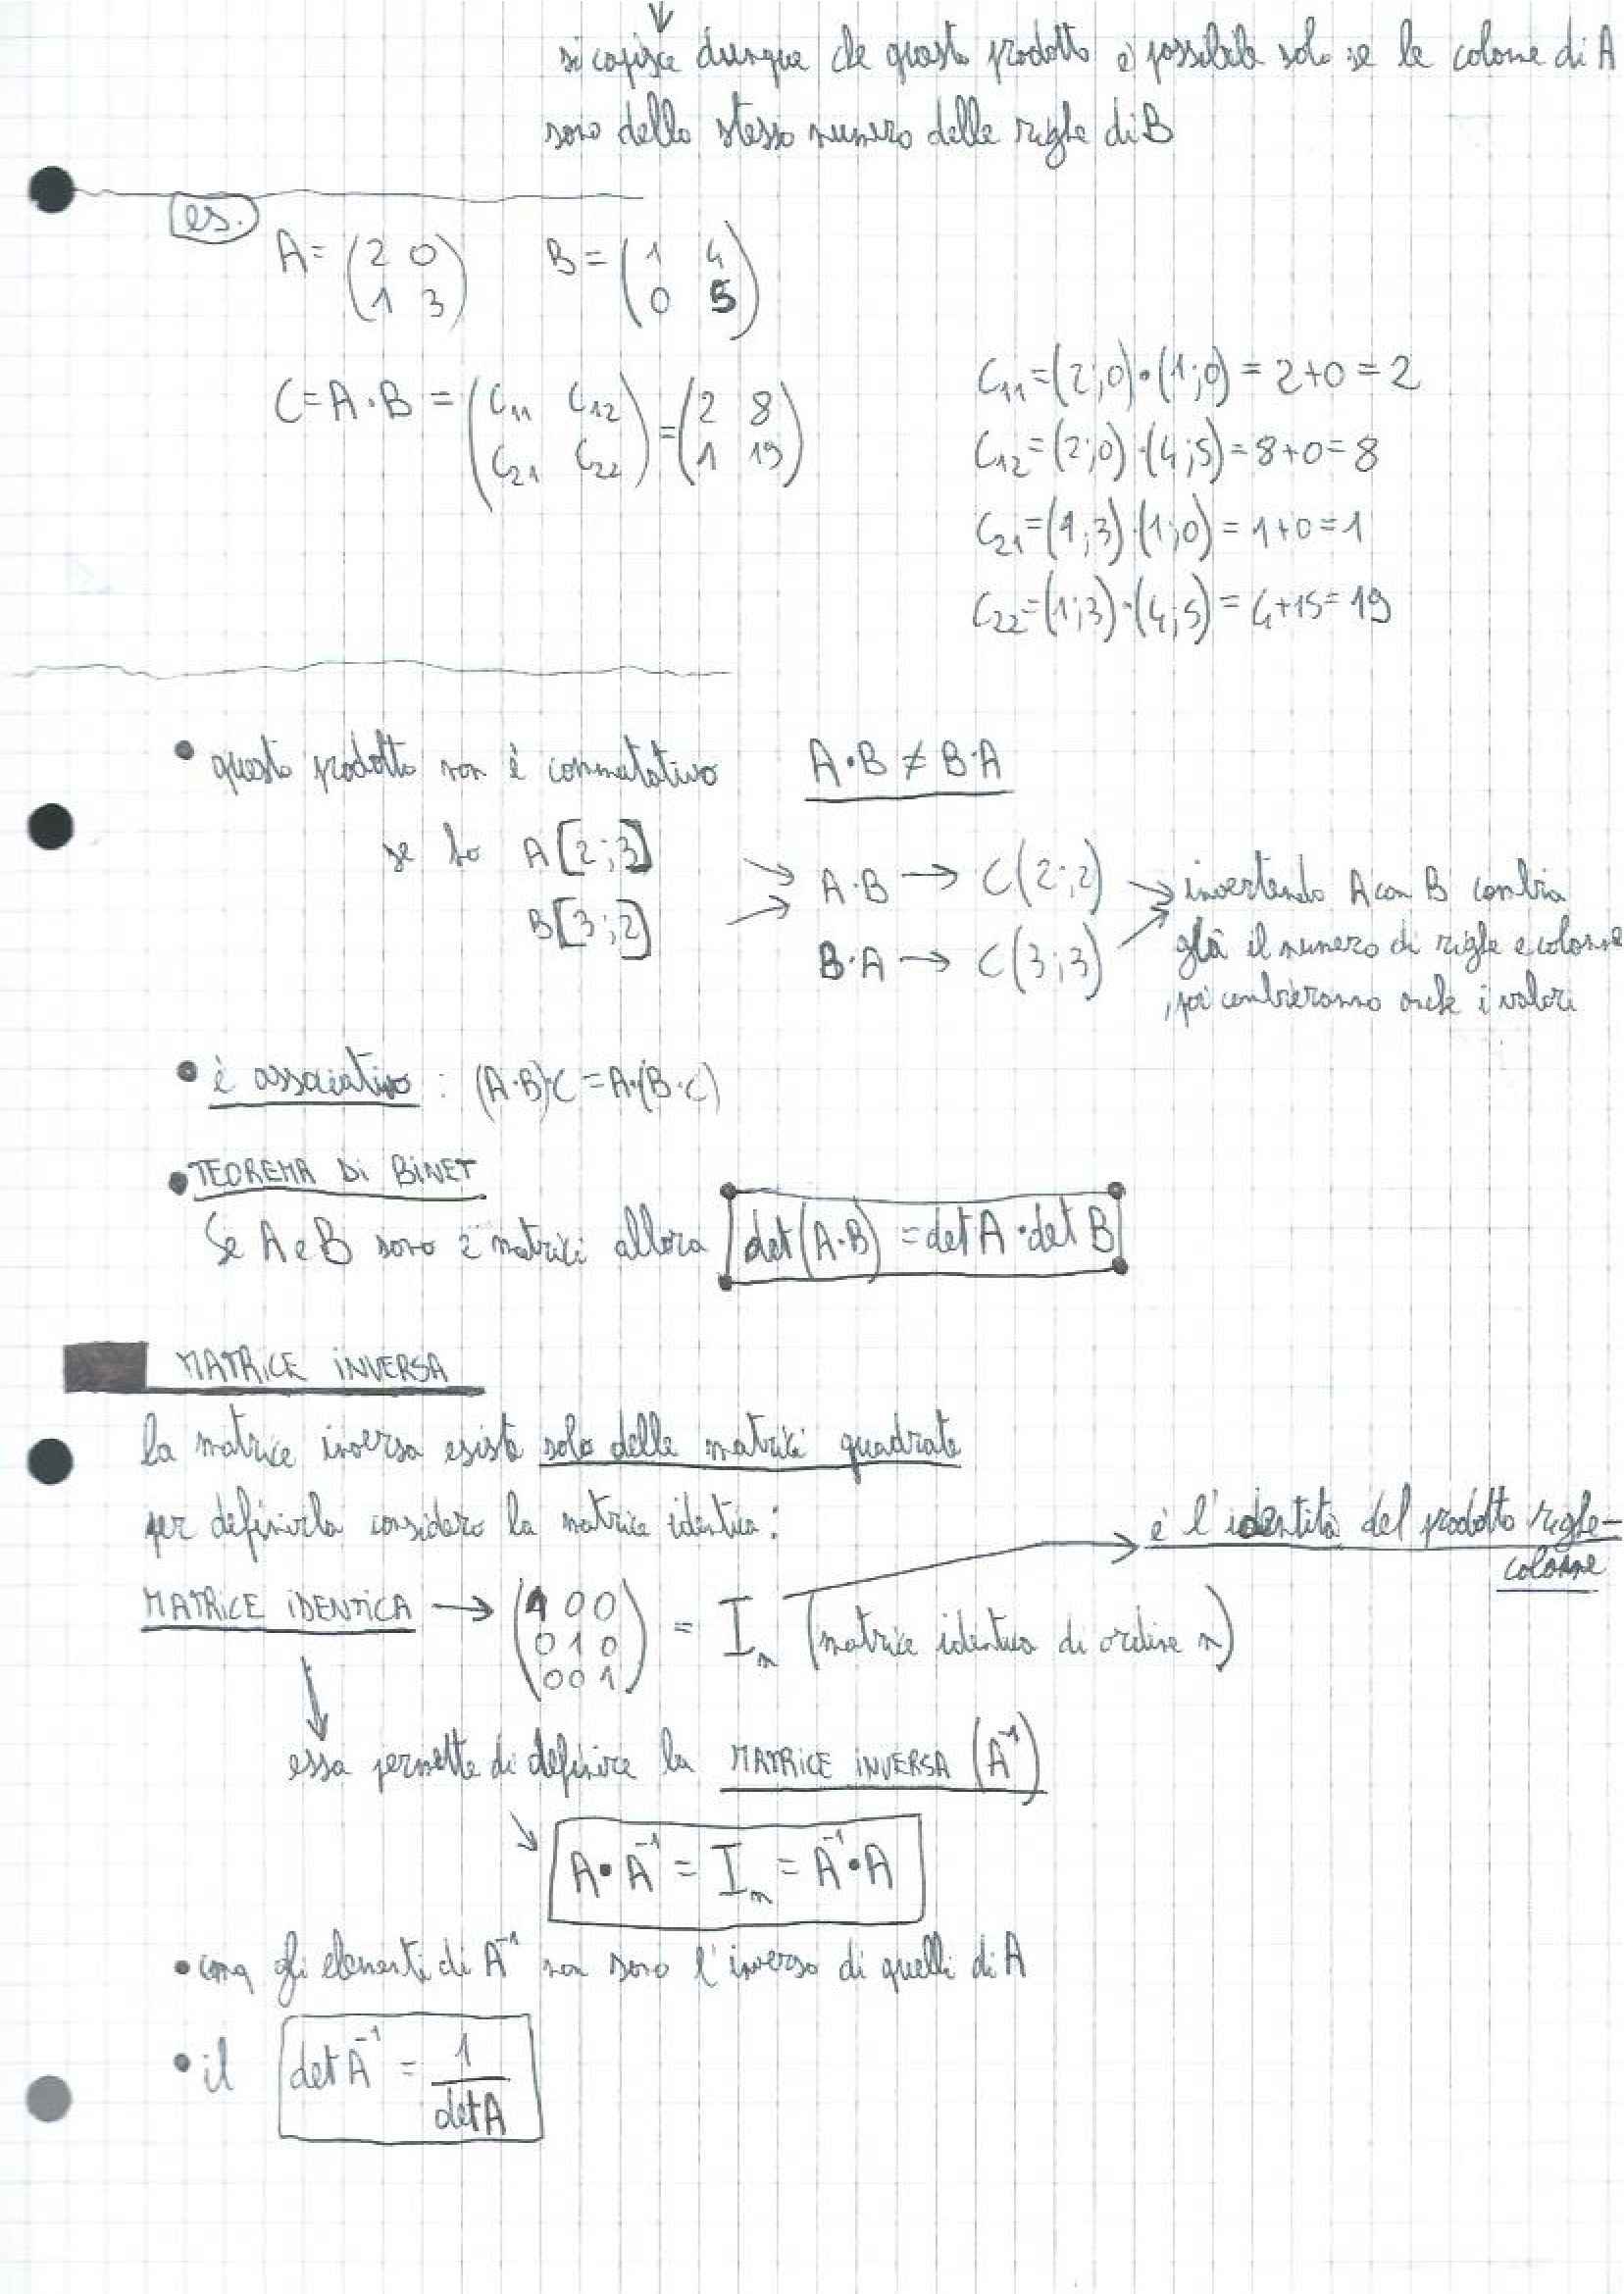 si capisce dunque che questo prodotto è possibile solo se le colonne di A
sono dello stesso numero delle righe di B
es.
A = (2 0
1 3) B = (1 4
0 5)
C = A · B = (C11 C12
C21 C22) = (2 8
1 19)
C11 = (2;0) · (1;0) = 2+0 = 2
C12 = (2;0) · (4;5) = 8+0 = 8
C21 = (1;3) · (1;0) = 1+0 = 1
C22 = (1;3) · (4;5) = 4+15 = 19
• questo prodotto non è commutativo A·B ≠ B·A
se ho A[2;3]
B[3;2]
A·B → C(2;2)
B·A → C(3;3)
→ invertendo A con B cambia
già il numero di righe e colonne
, poi cambieranno anche i valori
• è associativo : (A·B)·C = A·(B·C)
• TEOREMA Di BiNET
Se A e B sono 2 matrici allora det(A·B) = det A · det B
MATRiCE iNVERSA
la matrice inversa esiste solo delle matrici quadrate
per definirla considero la matrice identica:
MATRICE iDENTiCA → (1 0 0
0 1 0
0 0 1) = In (matrice identica di ordine n)
→ è l'identità del prodotto righe-
colonne
essa permette di definire la MATRiCE iNVERSA (A⁻¹)
A · A⁻¹ = In = A⁻¹ · A
• cmq gli elementi di A⁻¹ non sono l'inverso di quelli di A
• il det A⁻¹ = 1
det A